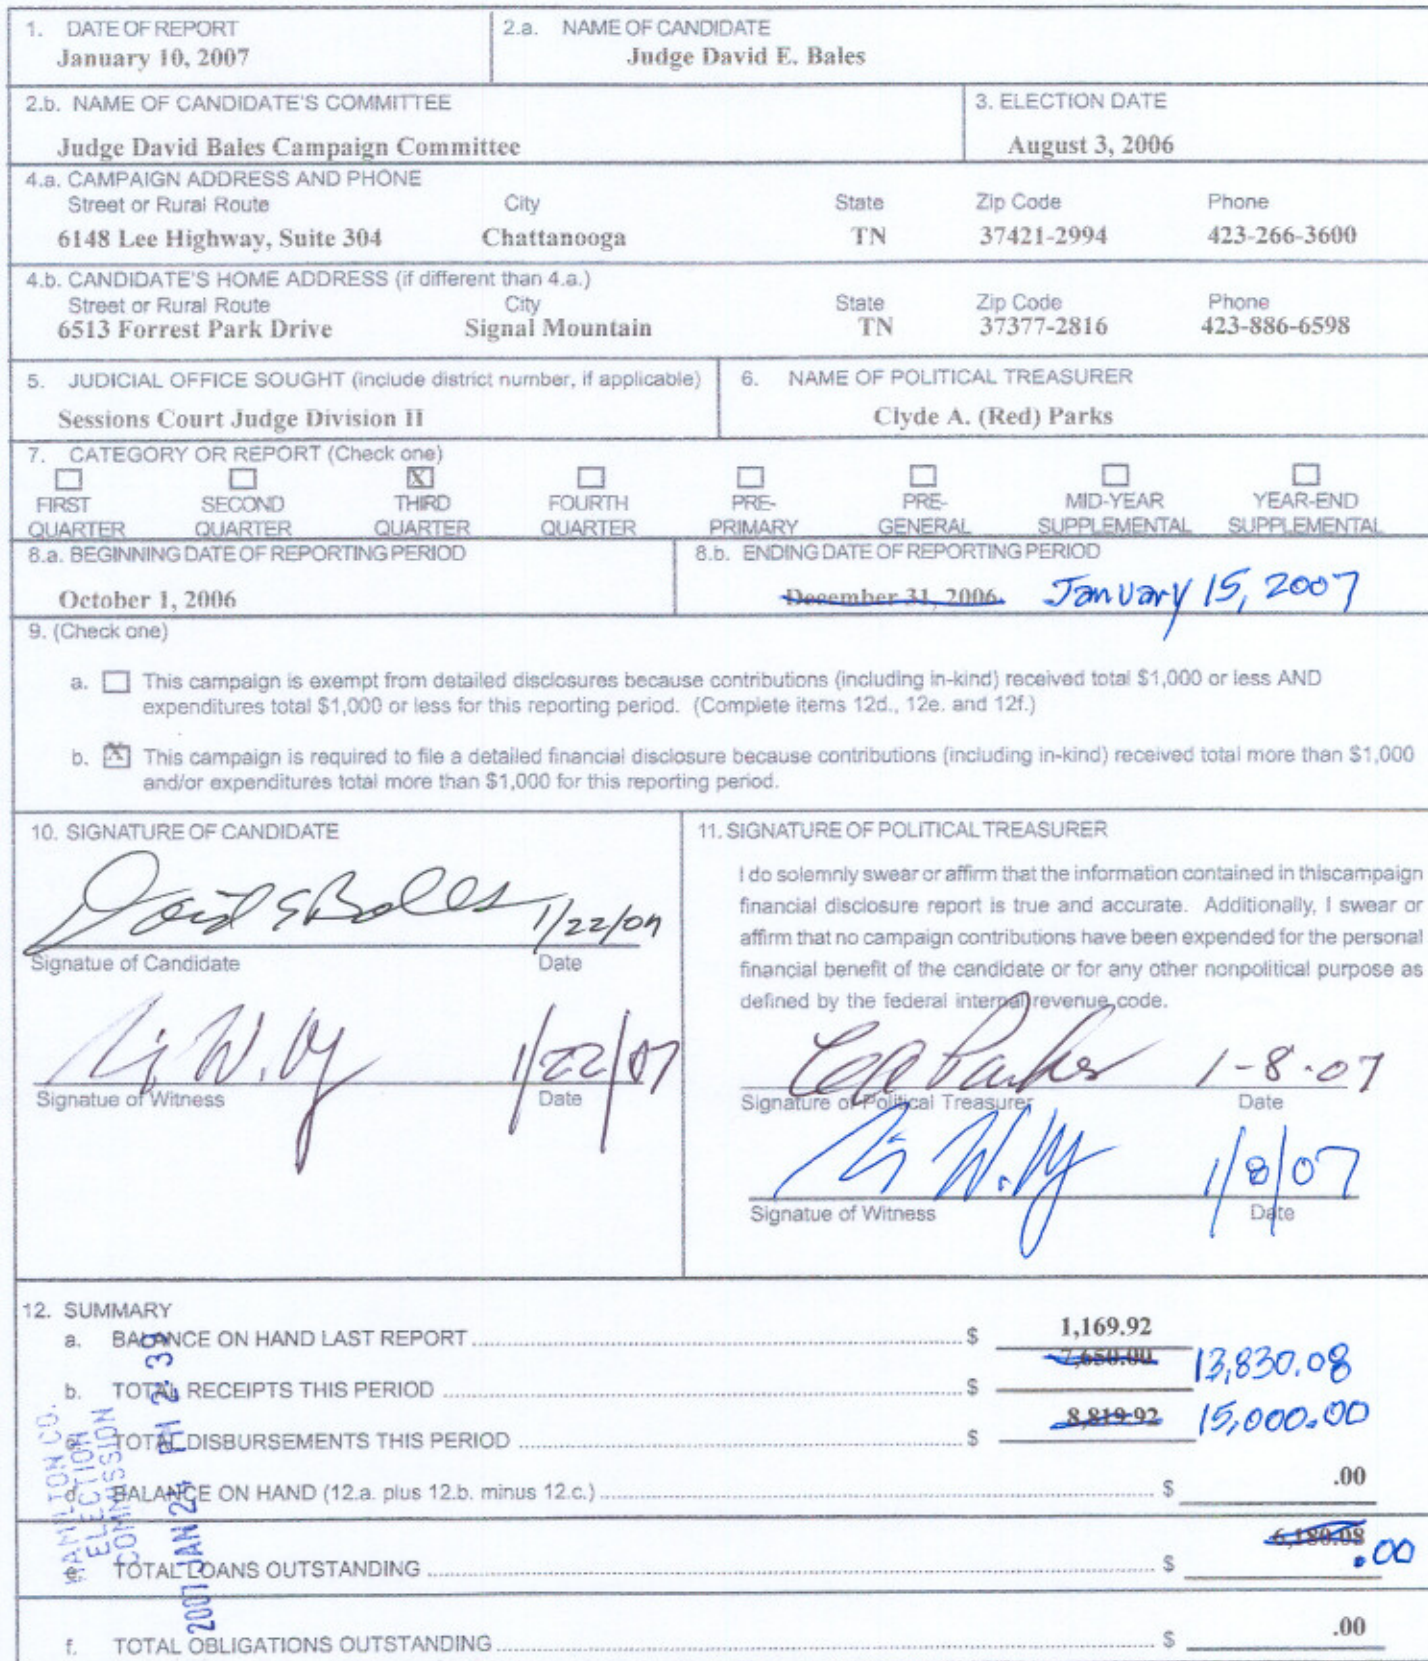 1. DATE OF REPORT
January 10, 2007
2.a. NAME OF CANDIDATE
Judge David E. Bales
2.b. NAME OF CANDIDATE'S COMMITTEE
Judge David Bales Campaign Committee
3. ELECTION DATE
August 3, 2006
4.a. CAMPAIGN ADDRESS AND PHONE
Street or Rural Route City State Zip Code Phone
6148 Lee Highway, Suite 304 Chattanooga TN 37421-2994 423-266-3600
4.b. CANDIDATE'S HOME ADDRESS (if different than 4.a.)
Street or Rural Route City State Zip Code Phone
6513 Forrest Park Drive Signal Mountain TN 37377-2816 423-886-6598
5. JUDICIAL OFFICE SOUGHT (include district number, if applicable)
Sessions Court Judge Division II
6. NAME OF POLITICAL TREASURER
Clyde A. (Red) Parks
7. CATEGORY OR REPORT (Check one)
X
FIRST SECOND THIRD FOURTH PRE- PRE- MID-YEAR YEAR-END
QUARTER QUARTER QUARTER QUARTER PRIMARY GENERAL SUPPLEMENTAL SUPPLEMENTAL
8.a. BEGINNING DATE OF REPORTING PERIOD
October 1, 2006
8.b. ENDING DATE OF REPORTING PERIOD
December 31, 2006. January 15, 2007
9. (Check one)
a. This campaign is exempt from detailed disclosures because contributions (including in-kind) received total $1,000 or less AND
expenditures total $1,000 or less for this reporting period. (Complete items 12d., 12e. and 12f.)
b. X This campaign is required to file a detailed financial disclosure because contributions (including in-kind) received total more than $1,000
and/or expenditures total more than $1,000 for this reporting period.
10. SIGNATURE OF CANDIDATE
David E Bales 1/22/07
Signatue of Candidate Date
1/22/07
Signatue of Witness Date
11. SIGNATURE OF POLITICAL TREASURER
I do solemnly swear or affirm that the information contained in thiscampaign
financial disclosure report is true and accurate. Additionally, I swear or
affirm that no campaign contributions have been expended for the personal
financial benefit of the candidate or for any other nonpolitical purpose as
defined by the federal internal revenue code.
1-8-07
Signature of Political Treasurer Date
1/8/07
Signatue of Witness Date
12. SUMMARY
a. BALANCE ON HAND LAST REPORT $ 1,169.92
b. TOTAL RECEIPTS THIS PERIOD $ 7,650.00 13,830.08
c. TOTAL DISBURSEMENTS THIS PERIOD $ 8,819.92 15,000.00
d. BALANCE ON HAND (12.a. plus 12.b. minus 12.c.) $ .00
e. TOTAL LOANS OUTSTANDING $ 6,180.08 .00
f. TOTAL OBLIGATIONS OUTSTANDING $ .00
HAMILTON CO.
ELECTION
COMMISSION
2007 JAN 24 PM 2:39